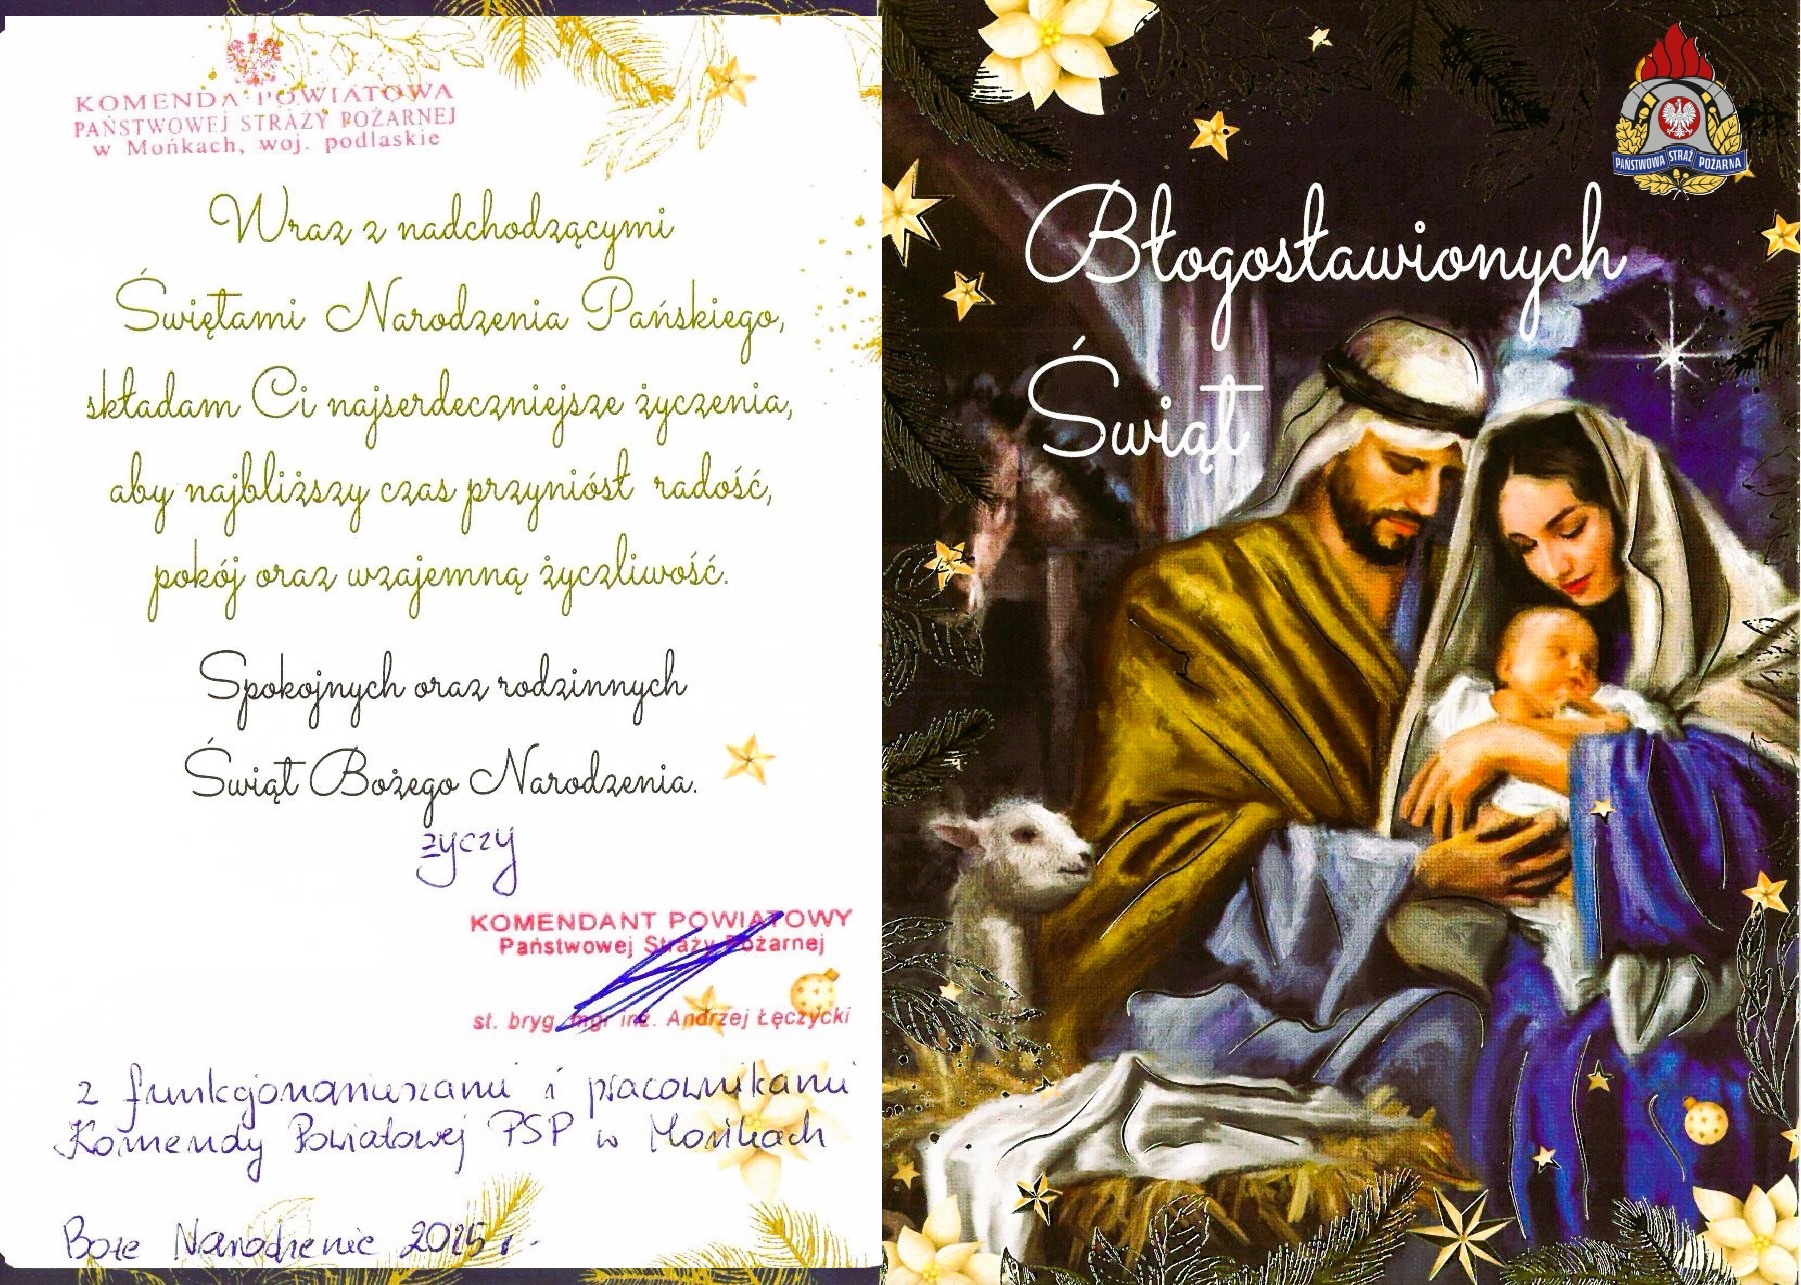 KOMENDA POWIATOWA
PAŃSTWOWEJ STRAŻY POŻARNEJ
w Mońkach, woj. podlaskie
Wraz z nadchodzącymi
Świętami Narodzenia Pańskiego,
składam Ci najserdeczniejsze życzenia,
aby najbliższy czas przyniósł radość,
pokój oraz wzajemną życzliwość.
Spokojnych oraz rodzinnych
Świąt Bożego Narodzenia.
życzy
KOMENDANT POWIATOWY
Państwowej Straży Pożarnej
st. bryg. mgr inż. Andrzej Łęczycki
z funkcjonariuszami i pracownikami
Komendy Powiatowej PSP w Mońkach
Boże Narodzenie 2025 r.
PAŃSTWOWA STRAŻ POŻARNA
Błogosławionych
Świąt